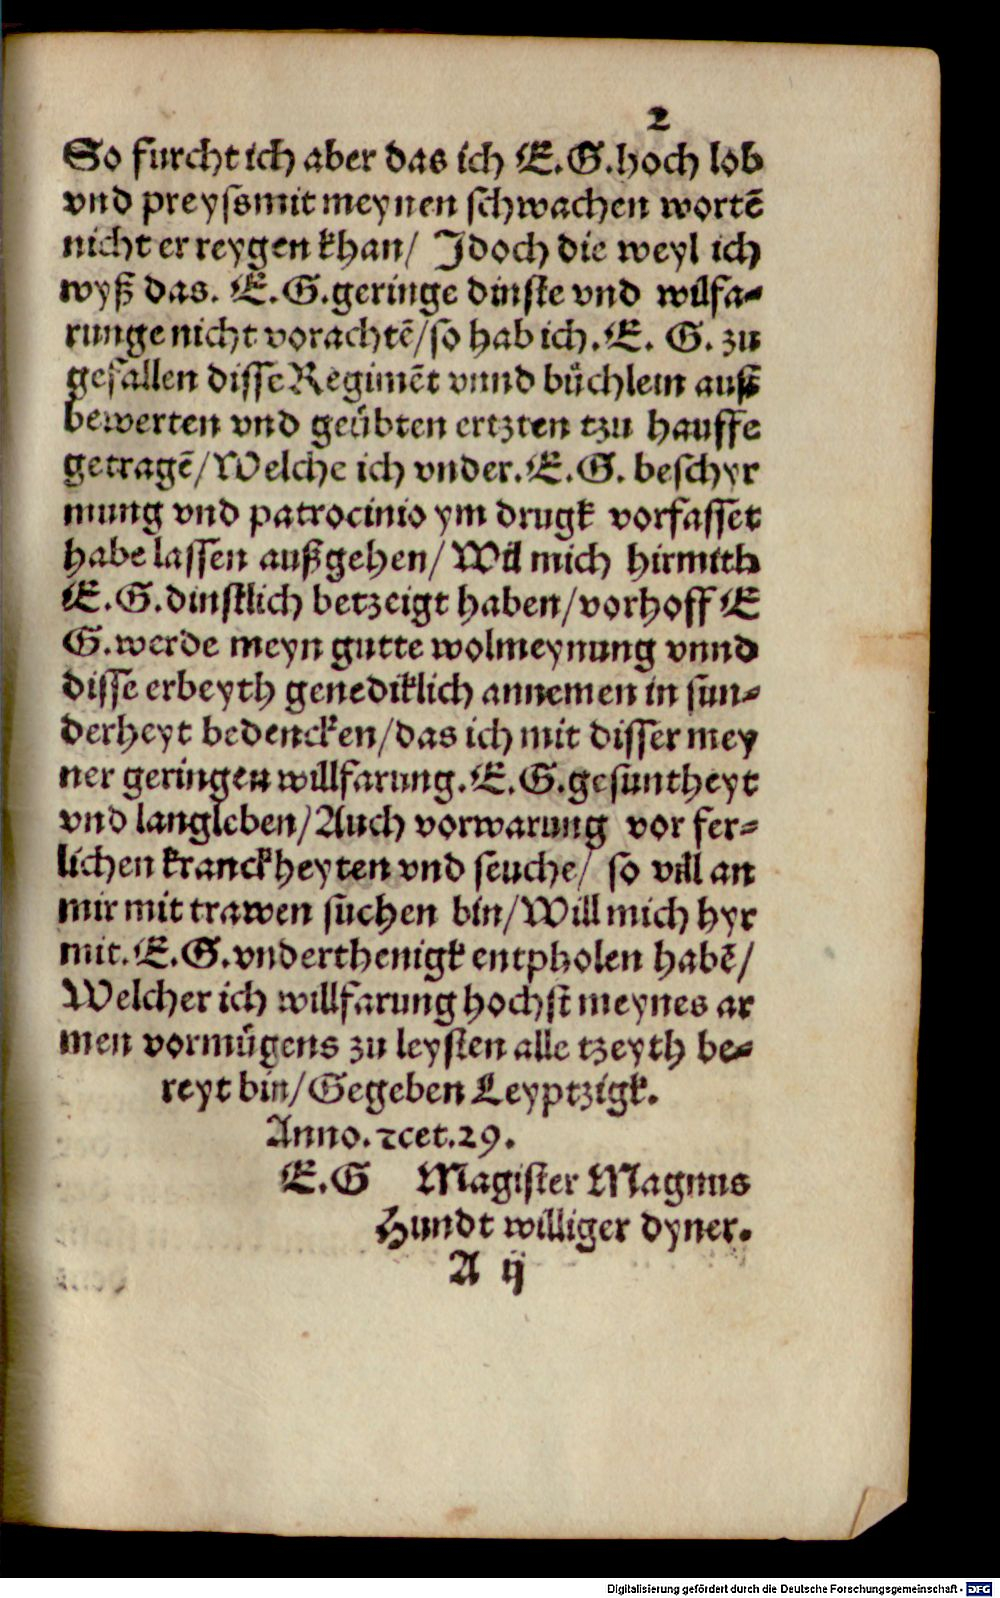 2
So furcht ich aber das ich E.G.hoch lob
vnd preyssmit meynen schwachen wortē
nicht er reygen khan/ Jdoch die weyl ich
wyß das. E.G.geringe dinste vnd wilfa-
runge nicht vorachtē/so hab ich.E. G. zu
gefallen disse Regimēt vnnd büchlein auß
bewerten vnd geübten ertzten tzu hauffe
getragē/Welche ich vnder.E.G. beschyr
mung vnd patrocinio ym drugk vorfasset
habe lassen außgehen/Wil mich hirmith
E.G.dinstlich betzeigt haben/vorhoff E
G.werde meyn gutte wolmeynung vnnd
disse erbeyth genediklich annemen in sun-
derheyt bedencken/das ich mit disser mey
ner geringen willfarung.E.G.gesuntheyt
vnd langleben/Auch vorwarung vor fer-
lichen kranckheyten vnd seuche/ so vill an
mir mit trawen suchen bin/Will mich hyr
mit.E.G.vnderthenigk entpholen habē/
Welcher ich willfarung hochst meynes ar
men vormügens zu leysten alle tzeyth be-
reyt bin/Gegeben Leyptzigk.
Anno.⁊cet.29.
E.G Magister Magnus
Hundt williger dyner.
A ij
Digitalisierung gefördert durch die Deutsche Forschungsgemeinschaft - DFG